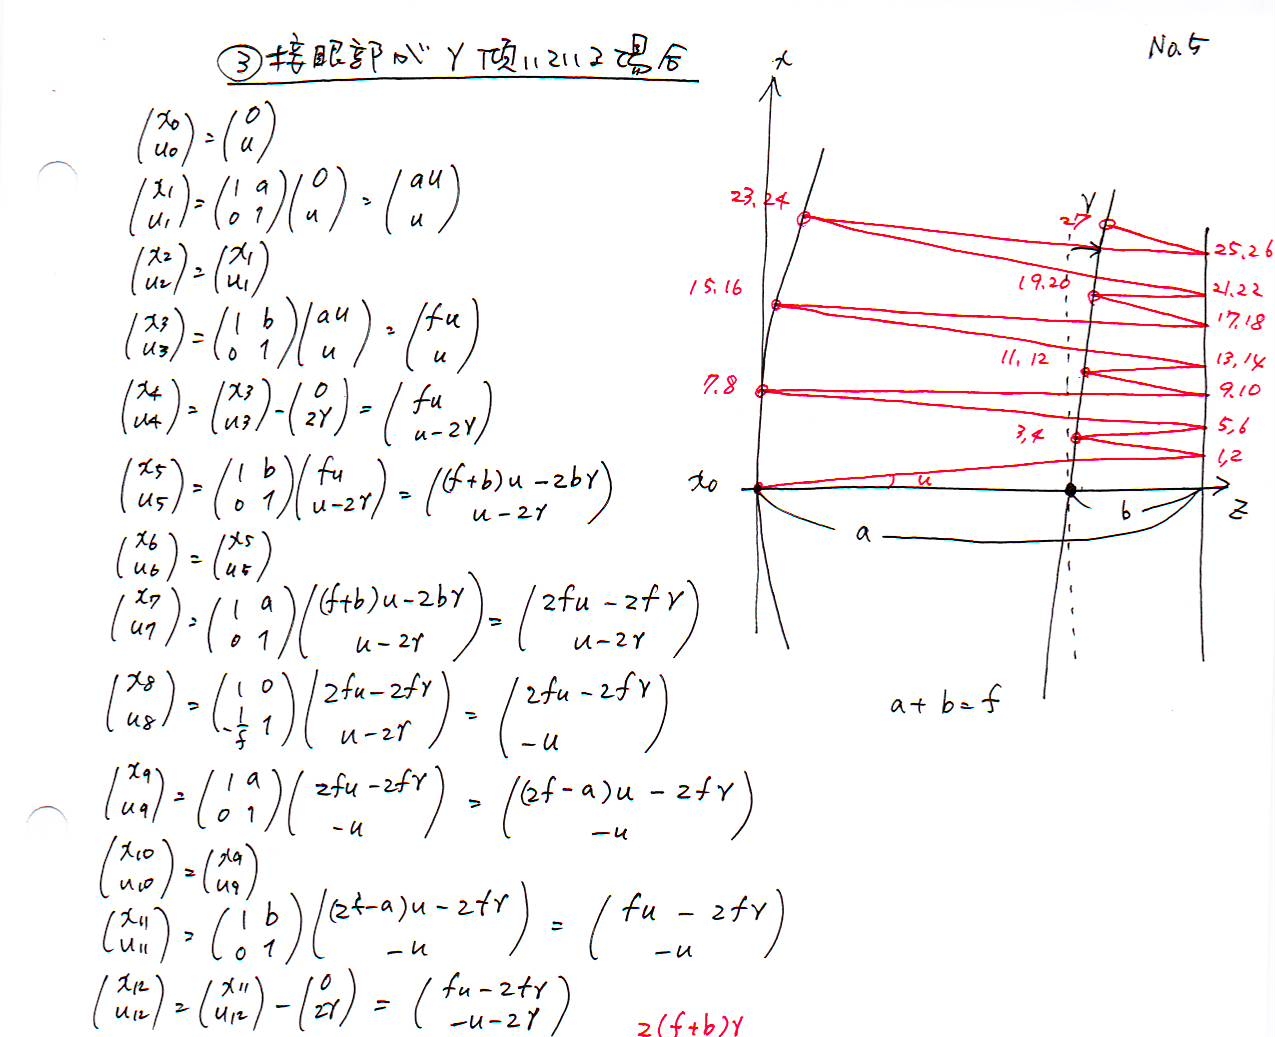 ③接眼部がγ傾いている場合
No.5
(x0 u0) = (0 u)
(x1 u1) = (1 a 0 1)(0 u) = (au u)
(x2 u2) = (x1 u1)
(x3 u3) = (1 b 0 1)(au u) = (fu u)
(x4 u4) = (x3 u3) - (0 2γ) = (fu u-2γ)
(x5 u5) = (1 b 0 1)(fu u-2γ) = ((f+b)u-2bγ u-2γ)
(x6 u6) = (x5 u5)
(x7 u7) = (1 a 0 1)((f+b)u-2bγ u-2γ) = (2fu-2fγ u-2γ)
(x8 u8) = (1 0 -1/f 1)(2fu-2fγ u-2γ) = (2fu-2fγ -u)
(x9 u9) = (1 a 0 1)(2fu-2fγ -u) = ((2f-a)u-2fγ -u)
(x10 u10) = (x9 u9)
(x11 u11) = (1 b 0 1)((2f-a)u-2fγ -u) = (fu-2fγ -u)
(x12 u12) = (x11 u12) - (0 2γ) = (fu-2fγ -u-2γ)
2(f+b)γ
x
23,24
γ
27
25,26
15,16
19,20
21,22
17,18
11,12
13,14
7,8
9,10
3,4
5,6
1,2
x0
u
a
b
z
a+b=f